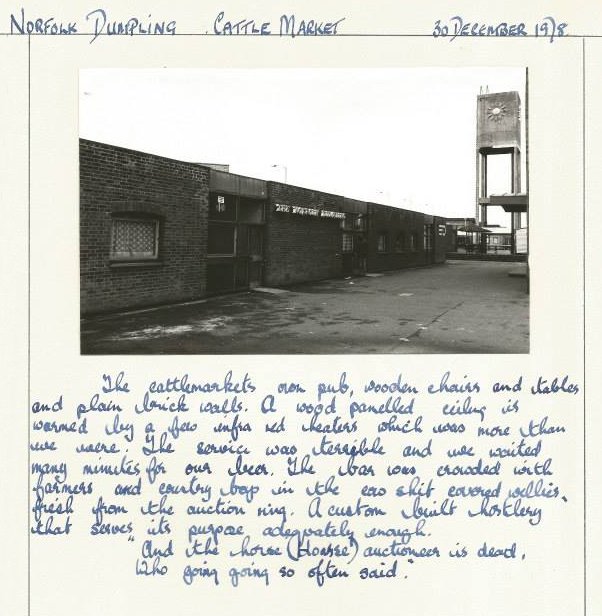 NORFOLK DUMPLING CATTLE MARKET 30 DECEMBER 1978
The cattlemarkets own pub, wooden chairs and tables
and plain brick walls. A wood panelled ceiling is
warmed by a few infra red heaters which was more than
we were. The service was terrible and we waited
many minutes for our beer. The bar was crowded with
farmers and country bop in the cow shit covered wellies,
fresh from the auction ring. A custom built hostlery
that serves its purpose adequately enough.
"And the horse (Hoarse) auctioneer is dead,
Who going going so often said."